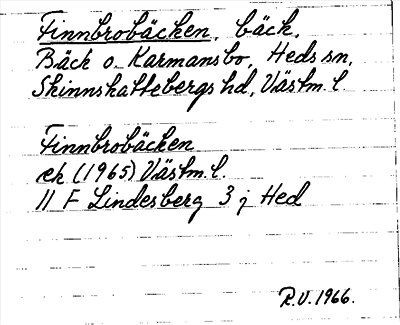 Finnbrobäcken, bäck,
Bäck o. Karmansbo, Heds sn,
Skinnskattebergs hd, Västm. l.
Finnbrobäcken
ek (1965) Västm. l.
11 F Lindesberg 3 j Hed
R.V. 1966.